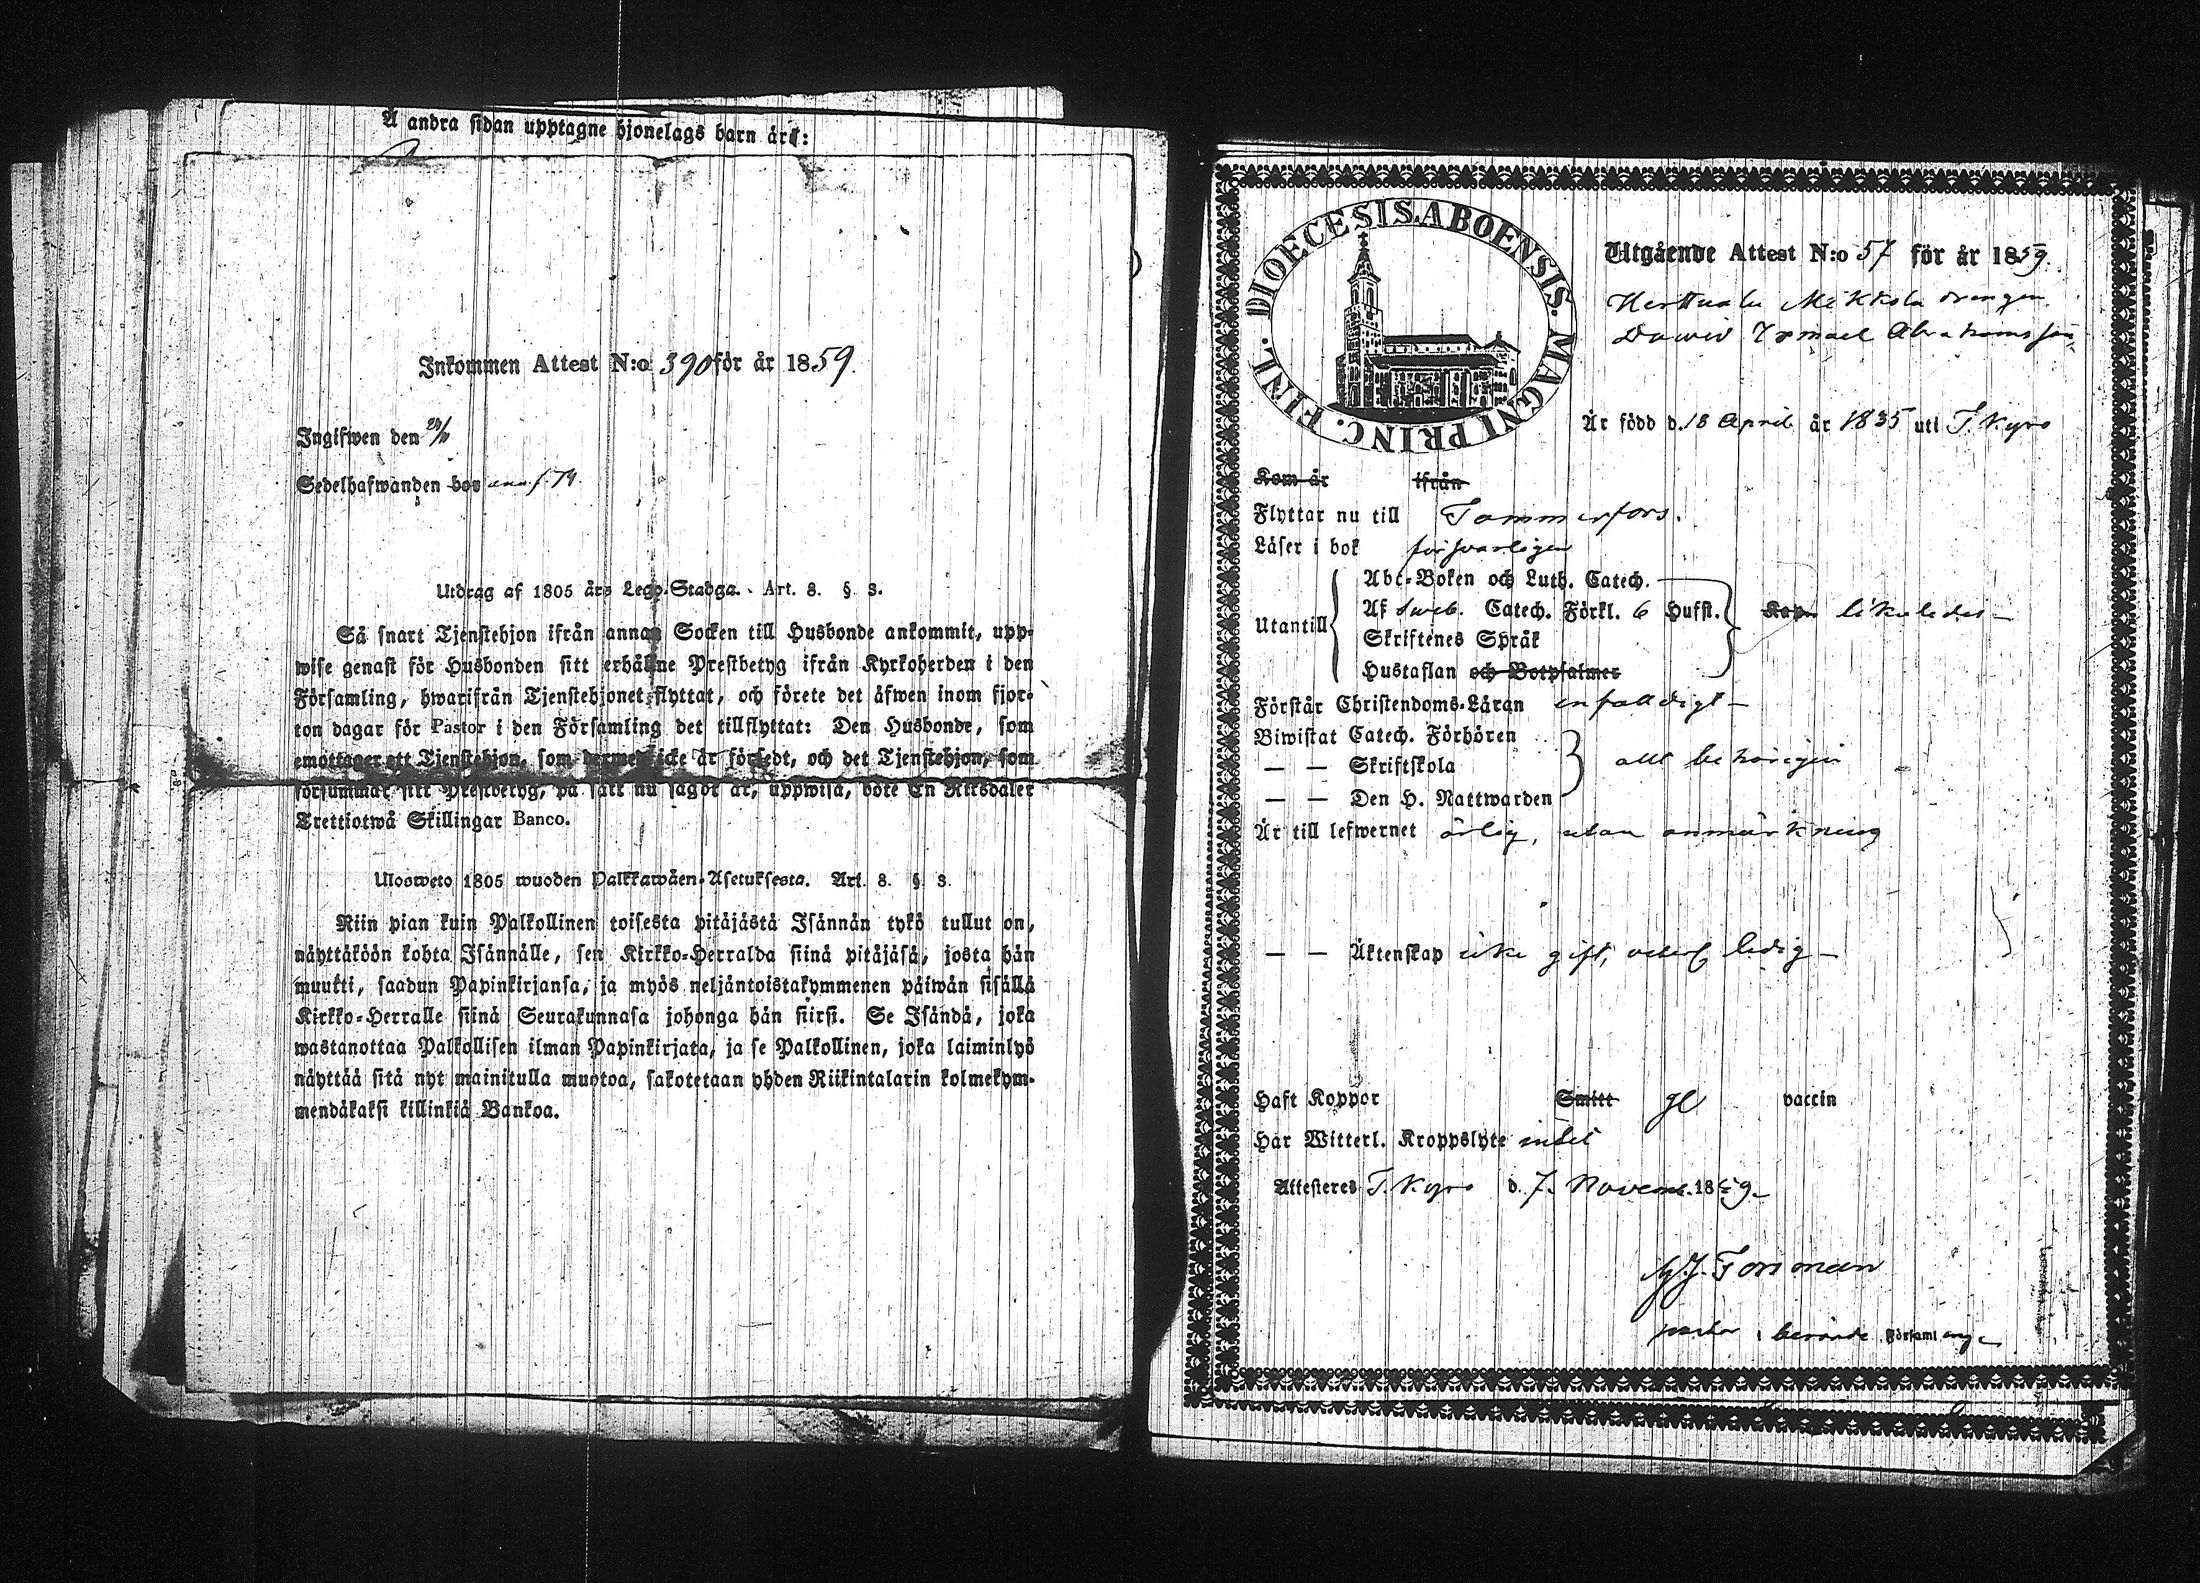 Å andra sidan upptagne hjonelags barn äro:
Inkommen Attest N:o 390 för år 1859.
Ingifwen den
Sedelhafwanden bor ann. f. 74.
Utdrag af 1805 års Lego-Stadga. Art. 8. §. 3.
Så snart Tjenstehjon ifrån annan Socken till Husbonde ankommit, upp-
wise genast för Husbonden sitt erhållne Prestbetyg ifrån Kyrkoherden i den
Församling, hwarifrån Tjenstehjonet flyttat, och förete det äfwen inom fjor-
ton dagar för Pastor i den Församling det tillflyttat: Den Husbonde, som
emottager ett Tjenstehjon, som dermed icke är försedt, och det Tjenstehjon, som
försummar sitt Prestbetyg, på sätt nu sagdt är, uppwisa, böte En Riksdaler
Trettiotwå Skillingar Banco.
Ulosweto 1805 wuoden Palkkawäen-Asetuksesta. Art. 8. §. 3.
Niin pian kuin Palkollinen toisesta pitäjästä Isännän tykö tullut on,
näyttäköön kohta Isännälle, sen Kirkko-Herralda siinä pitäjäsä, josta hän
muutti, saadun Papinkirjansa, ja myös neljäntoistakymmenen päiwän sisällä
Kirkko-Herralle siinä Seurakunnasa johonga hän siirsi. Se Isändä, joka
wastanottaa Palkollisen ilman Papinkirjata, ja se Palkollinen, joka laiminlyö
näyttää sitä nyt mainitulla muotoa, sakotetaan yhden Riikintalarin kolmekym-
mendäkaksi killinkiä Bankoa.
DIOECESIS ABOENSIS. MAGNI PRINC. FINL.
Utgående Attest N:o 57 för år 1859.
Herttuala Mikkola drengen
Dawid Ismael Abrahamsson
Är född d. 18 April år 1835 uti T. Kyro
Kom år ifrån
Flyttar nu till Tammerfors.
Läser i bok försvarligen
Utantill
Abc-Boken och Luth. Catech.
Af Sveb. Catech. Förkl. 6 Hufst. Kap. likaledes
Skriftenes Språk
Hustaflan och Botpsalmer
Förstår Christendoms-Läran enfaldigt
Biwistat Catech. Förhören
— — Skriftskola allt behörigen
— — Den H. Nattwarden
Är till lefwernet ärlig, utan anmärkning
— — Äktenskap icke gift, ledig
Haft Koppor Smitt vaccin
Har Witterl. Kroppslyte intet
Attesteras T. Kyro d. 7. Novemb. 1859.
Forsman
pastor i berörde Församling